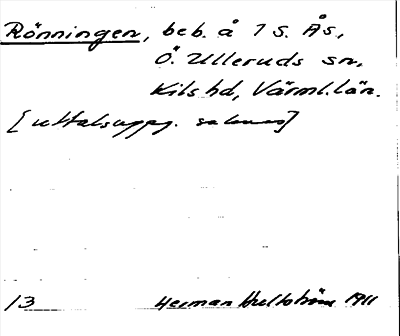 Rönningen, beb. å 7 S. Ås,
Ö. Ulleruds sn,
Kils hd, Värml. län.
[uttalsuppg. saknas]
13 Herman Hultström 1911